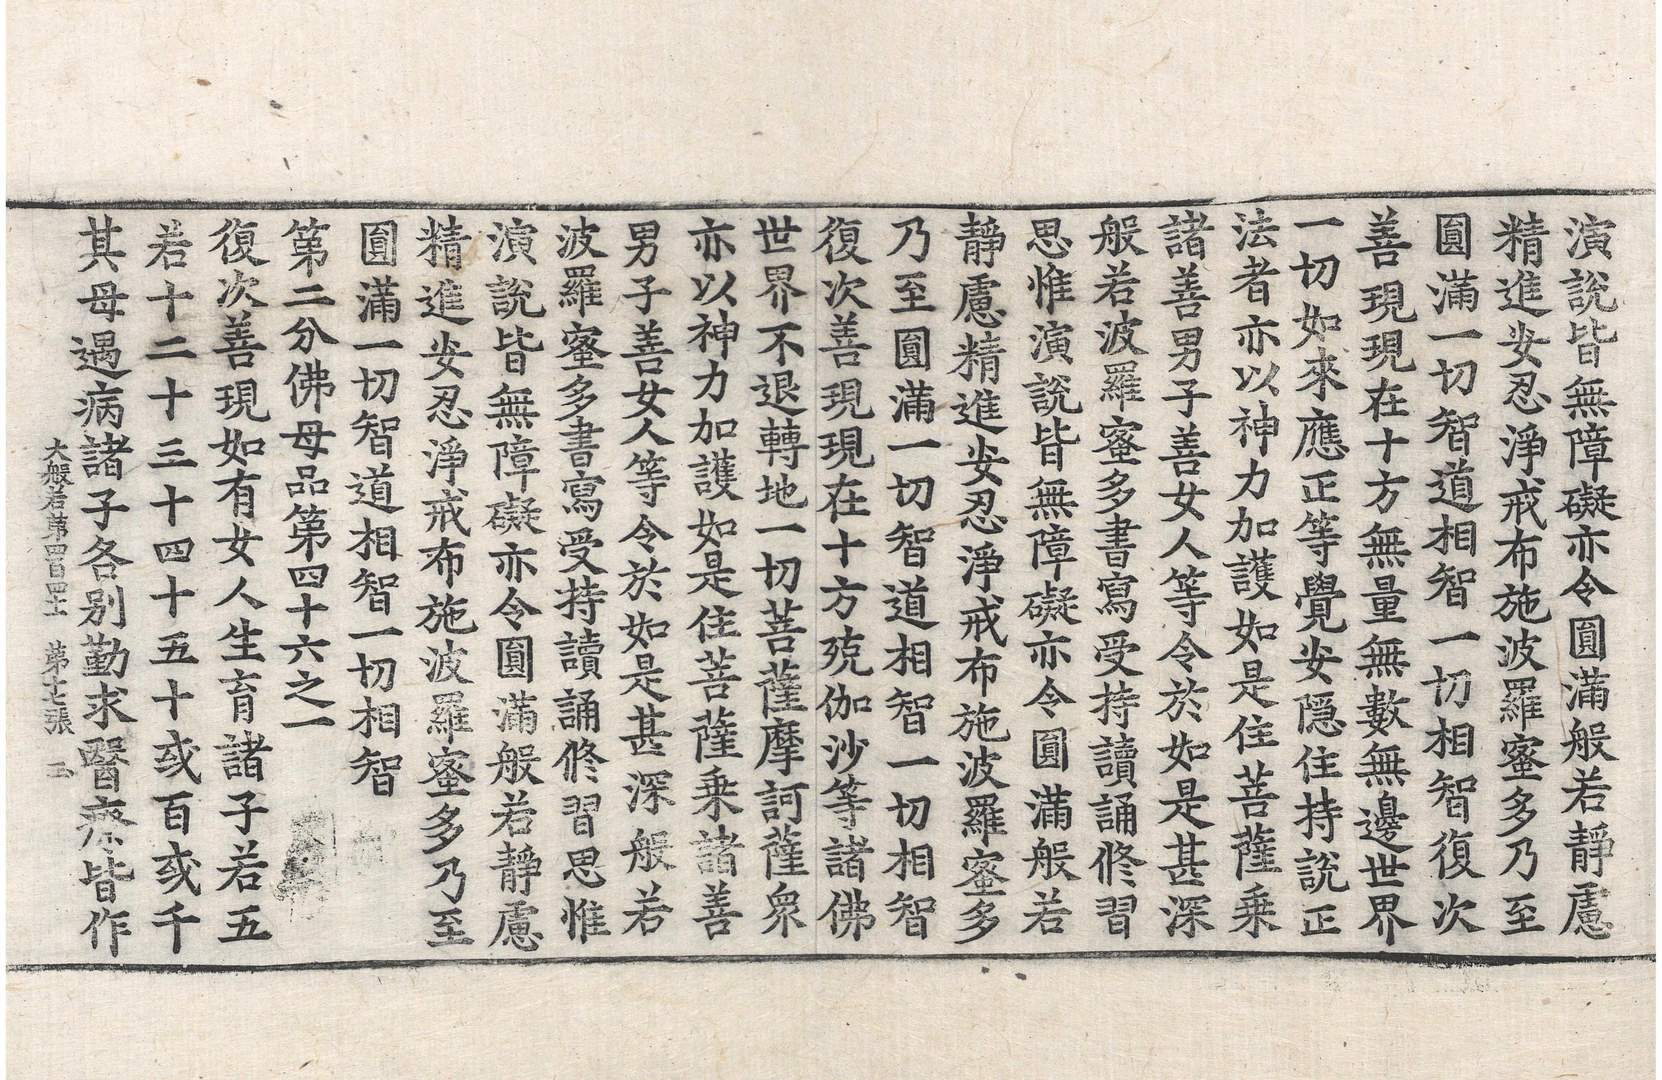 演說皆無障礙亦令圓滿般若靜慮
精進安忍淨戒布施波羅蜜多乃至
圓滿一切智道相智一切相智復次
善現現在十方無量無數無邊世界
一切如來應正等覺安隱住持說正
法者亦以神力加護如是住菩薩乘
諸善男子善女人等令於如是甚深
般若波羅蜜多書寫受持讀誦修習
思惟演說皆無障礙亦令圓滿般若
靜慮精進安忍淨戒布施波羅蜜多
乃至圓滿一切智道相智一切相智
復次善現現在十方殑伽沙等諸佛
世界不退轉地一切菩薩摩訶薩衆
亦以神力加護如是住菩薩乘諸善
男子善女人等令於如是甚深般若
波羅蜜多書寫受持讀誦修習思惟
演說皆無障礙亦令圓滿般若靜慮
精進安忍淨戒布施波羅蜜多乃至
圓滿一切智道相智一切相智
第二分佛母品第四十六之一
復次善現如有女人生育諸子若五
若十二十三十四十五十或百或千
其母遇病諸子各別勤求醫療皆作
大般若第四百四十一 第十七張